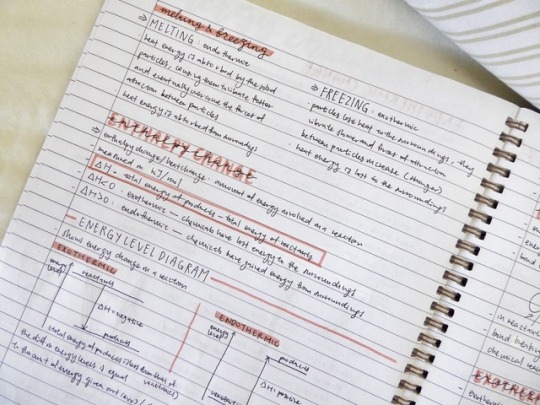 melting & freezing
⇒ MELTING : endothermic
heat energy is absorbed by the solid
particles, causing them to vibrate faster
and eventually overcome the forces of
attraction between particles
heat energy is absorbed from surroundings
⇒ FREEZING : exothermic
particles lose heat to the surroundings, they
vibrate slower and forces of attraction
between particles increase (stronger)
heat energy is lost to the surroundings
ENTHALPY CHANGE
⇒ enthalpy change / heat change : amount of energy involved in a reaction
measured in kJ/mol
ΔH = total energy of products - total energy of reactants
ΔH<0 : exothermic — chemicals have lost energy to the surroundings
ΔH>0 : endothermic — chemicals have gained energy from surroundings
ENERGY LEVEL DIAGRAM
show energy change in a reaction
EXOTHERMIC
energy level
reactants
ΔH = negative
products
(total energy of products is less than that of
reactants)
the diff in energy levels is equal
to the amt of energy given out
ENDOTHERMIC
energy
level
products
ΔH : positive
reactants
in reactants
bond
chemical
EXOTHERMIC